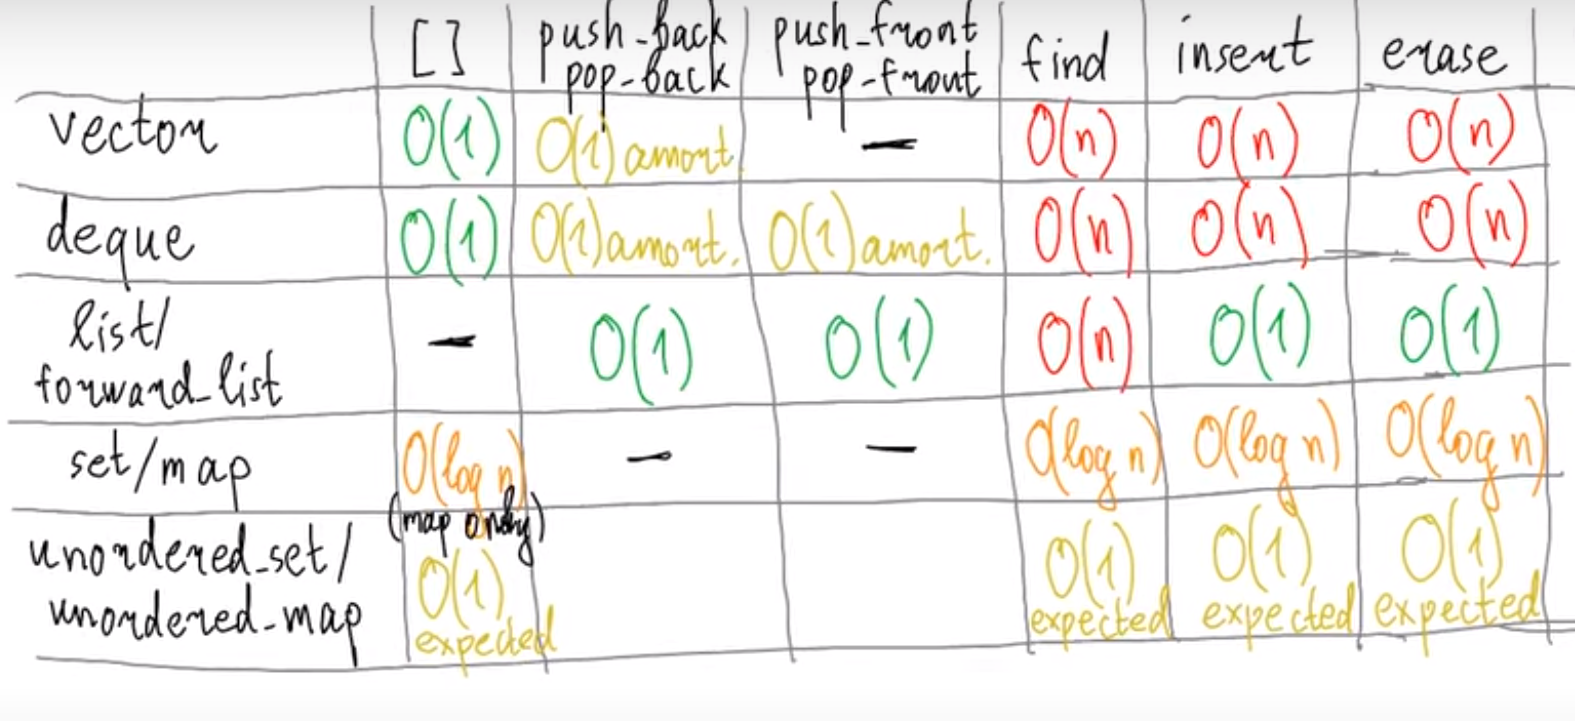 [] push_back pop_back push_front pop_front find insert erase
vector O(1) O(1) amort. – O(n) O(n) O(n)
deque O(1) O(1) amort. O(1) amort. O(n) O(n) O(n)
list/
forward_list – O(1) O(1) O(n) O(1) O(1)
set/map O(log n) – – O(log n) O(log n) O(log n)
(map only)
unordered_set/
unordered_map O(1) expected O(1) expected O(1) expected O(1) expected